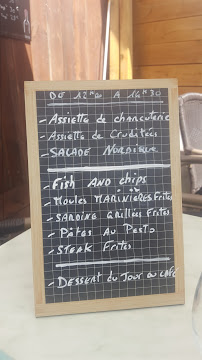 DE 12H00 A 14H30
- Assiette de charcuterie
- Assiette de Crudités
- SALADE NORDIQUE
- Fish AND chips
- Moules MARINIÈRES Frites
- SARDINE GRILLÉES Frites
- Pâtes Au Pesto
- STEAK Frites
- DESSERT du Jour ou CAFÉ